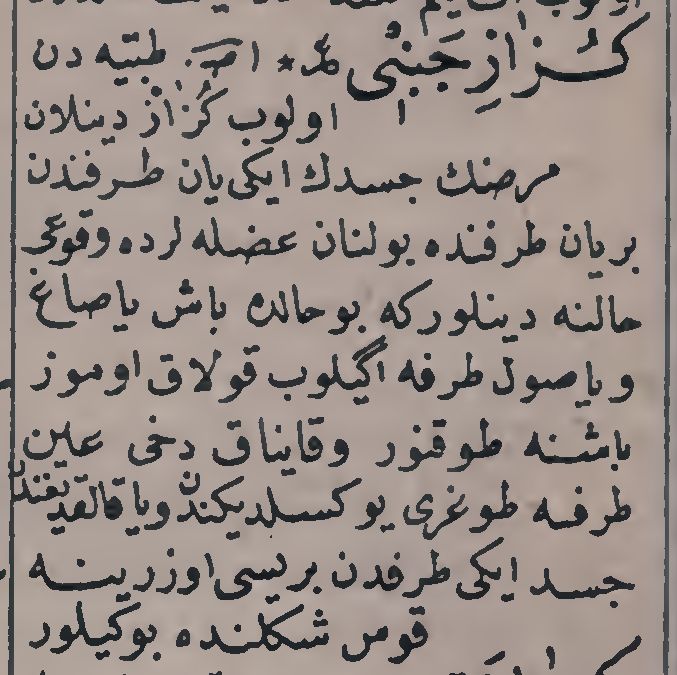 كُزازِ جَنبْى ع * اصـ. طبيه دن
اولوب كُزاز دينلان
مرضك جسدك ايكى يان طرفندن
بر يان طرفنده بولنان عضله لرده وقوعى
حالنه دينلوركه بو حالده باش يا صاغ
و يا صول طرفه اگيلوب قولاق اوموز
باشنه طوقنور وقايناق دخى عين
طرفه طوغرى يوكسلديكندن ويا قالقديغندن
جسد ايكى طرفدن بريسى اوزرينه
قوس شكلنده بوكيلور